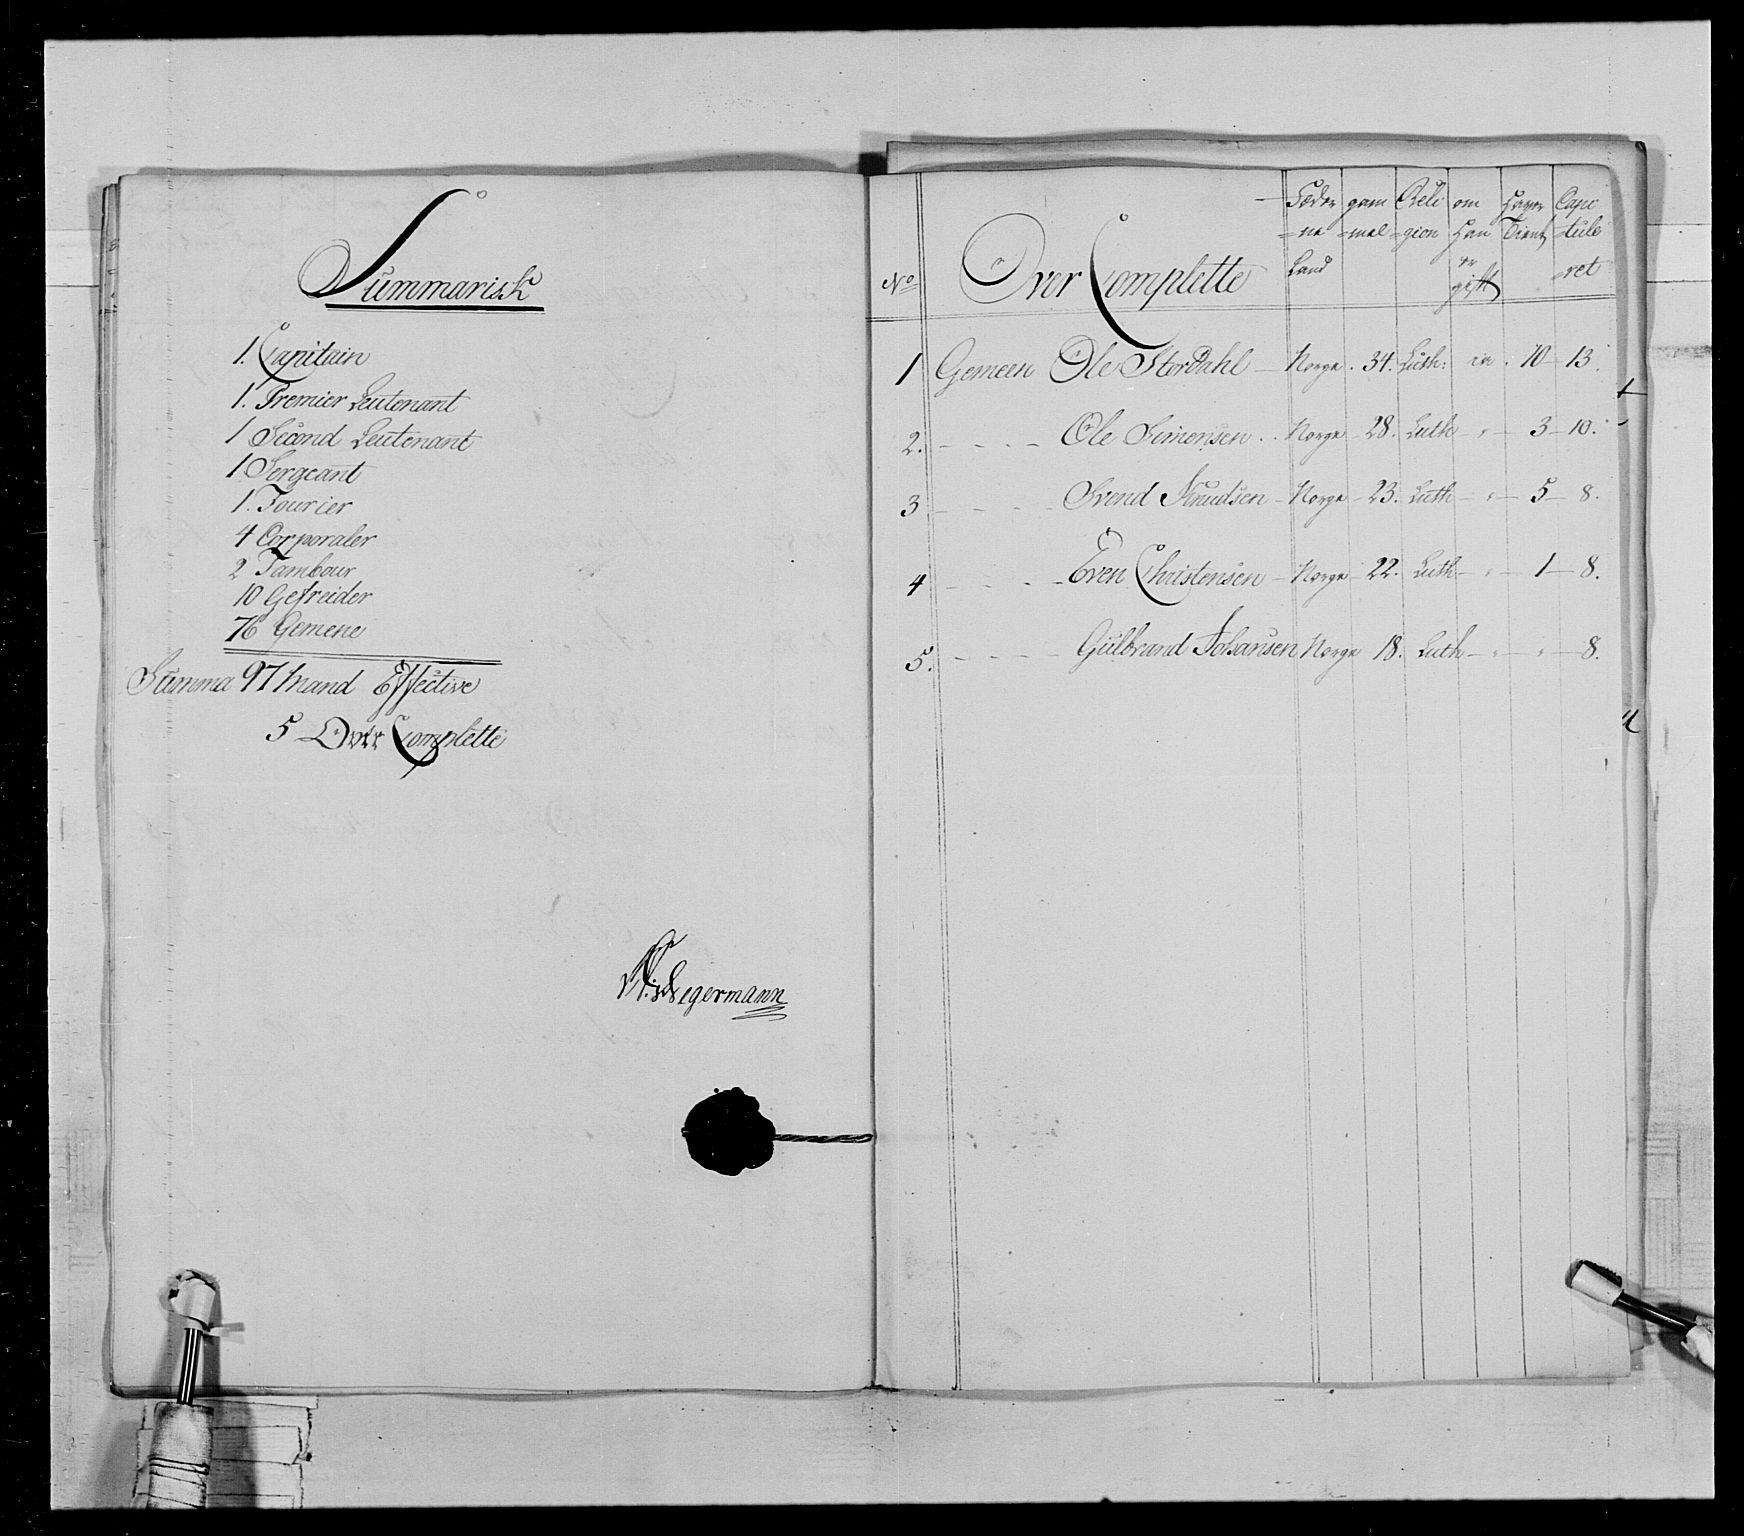 Summarisk
1. Capitain
1. Premier Leutenant
1 Second Leutenant
1 Sergeant
1. Fourier
4 Corporaler
2 Tambour
10 Gefreider
76 Gemene
Summa 97 Mand Effective
5 Over Complette
Wegermann
No
Over Complette
Fæder gam Reli om Haver Capi
=ne =mel =gion Han Tient =tule
Land er =ret
gift
1 Gemeen Ole Stordahl — Norge . 34. Luth: ia . 10 — 13.
2. - - - - Ole Simensen . . Norge — 28. Luth — " — 3 — 10.
3 - - - - Svend Knudsen — Norge — 23. Luth — " — 5 — 8.
4 - - - - Even Christensen — Norge — 22. Luth — " — 1 — 8.
5. - - - - Gulbrand Johansen Norge 18. Luth — " — " — 8.